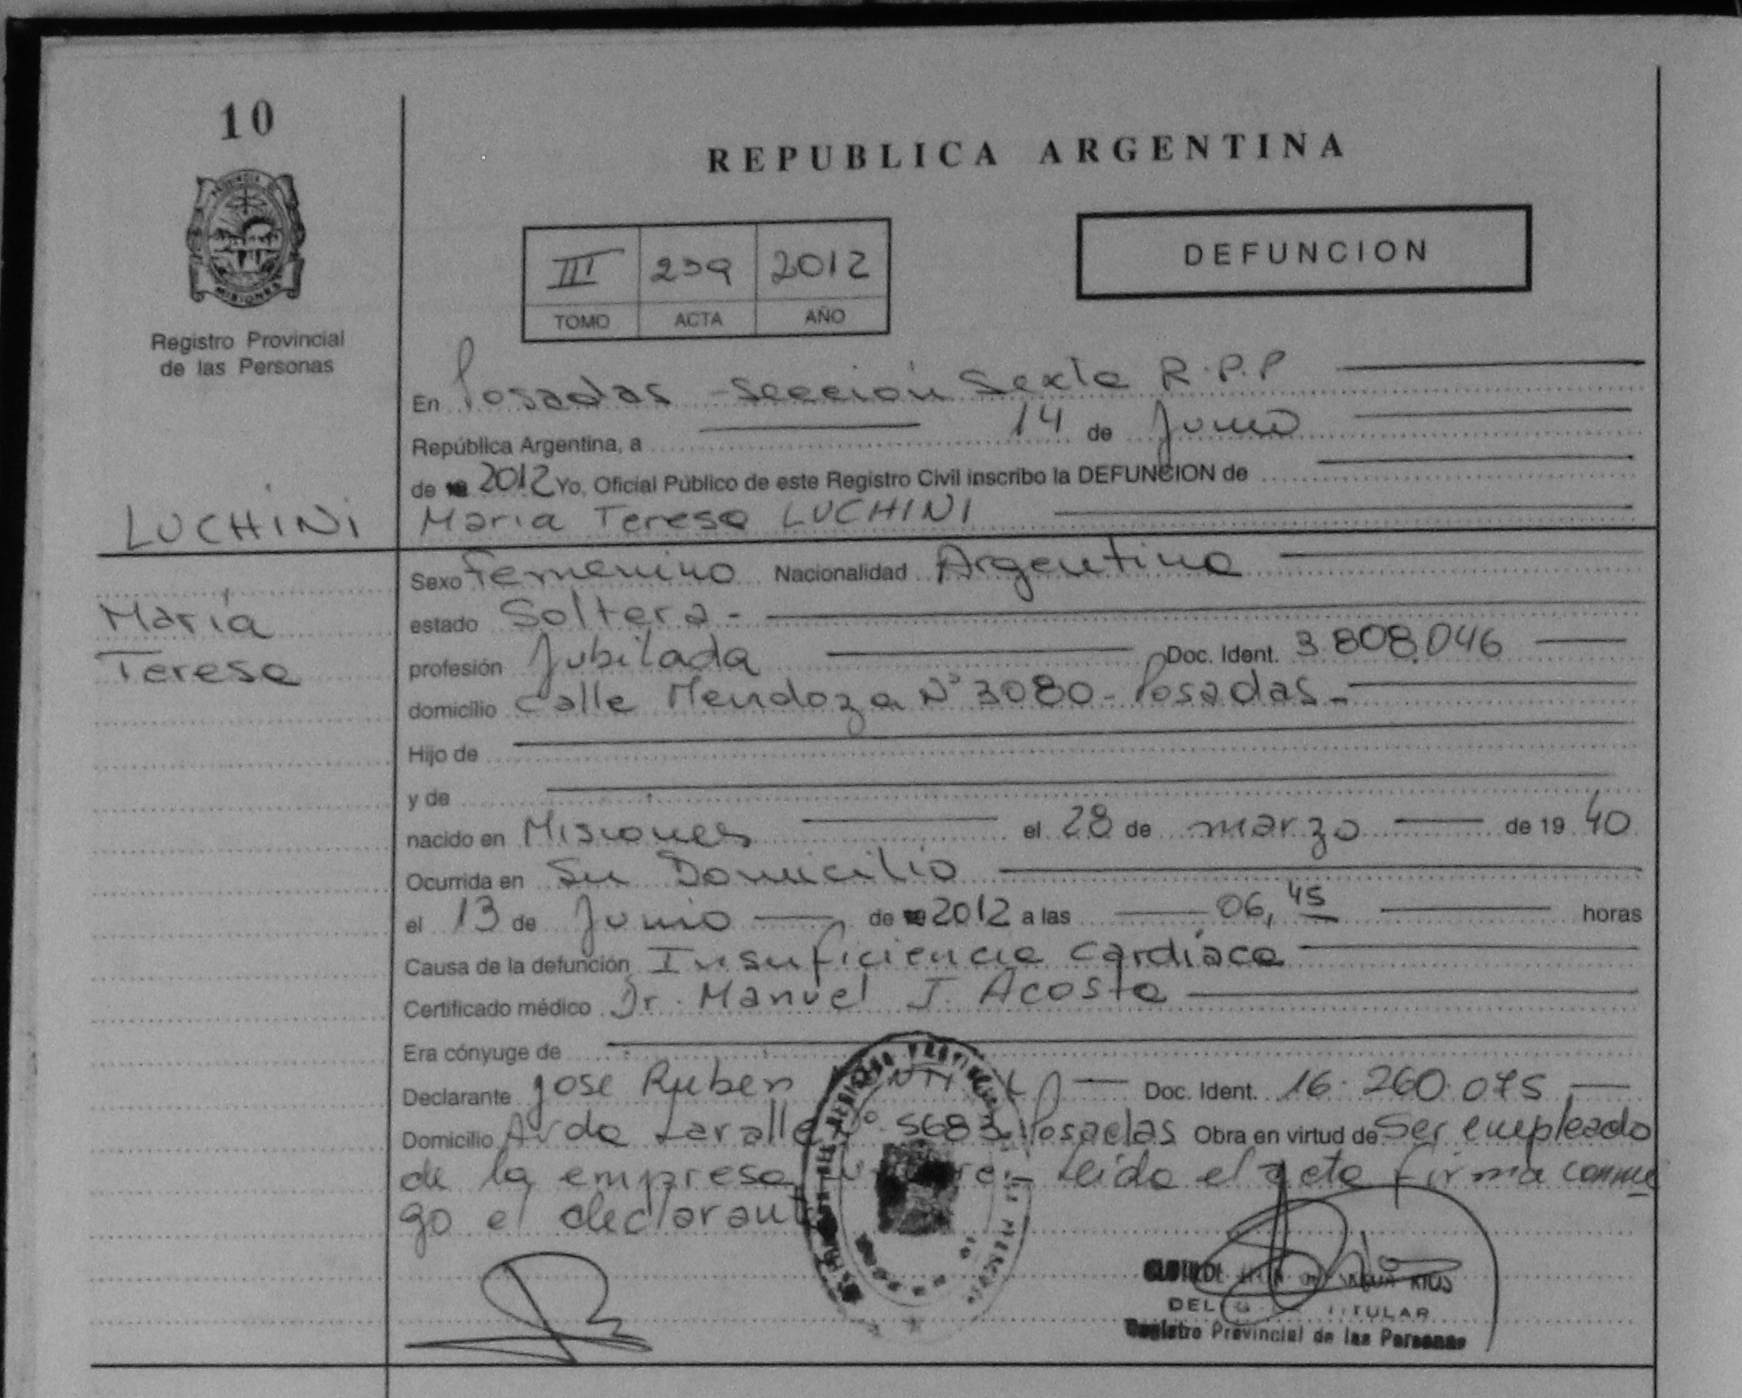 10
REPUBLICA ARGENTINA
PROVINCIA DE
MISIONES
Registro Provincial
de las Personas
DEFUNCION
III 239 2012
TOMO ACTA AÑO
En Posadas - Sección Sexta R.P.P
República Argentina, a 14 de Junio
de 2012 Yo, Oficial Público de este Registro Civil inscribo la DEFUNCION de
LUCHINI
María Teresa LUCHINI
María
Teresa
Sexo Femenino Nacionalidad Argentina
estado Soltera -
profesión Jubilada Doc. Ident. 3.808.046
domicilio Calle Mendoza Nº 3080 - Posadas -
Hijo de
y de
nacido en Misiones el 28 de marzo de 19 40
Ocurrida en Su Domicilio
el 13 de Junio de 2012 a las 06,45 horas
Causa de la defunción Insuficiencia cardíaca
Certificado médico Dr. Manuel J. Acosta
Era cónyuge de
Declarante José Ruben Doc. Ident. 16.260.075
Domicilio Avda Lavalle Nº 5683 Posadas Obra en virtud de Ser empleado
de la empresa leida el acta firma conmi
go el declarante
DEL TITULAR
Registro Provincial de las Personas